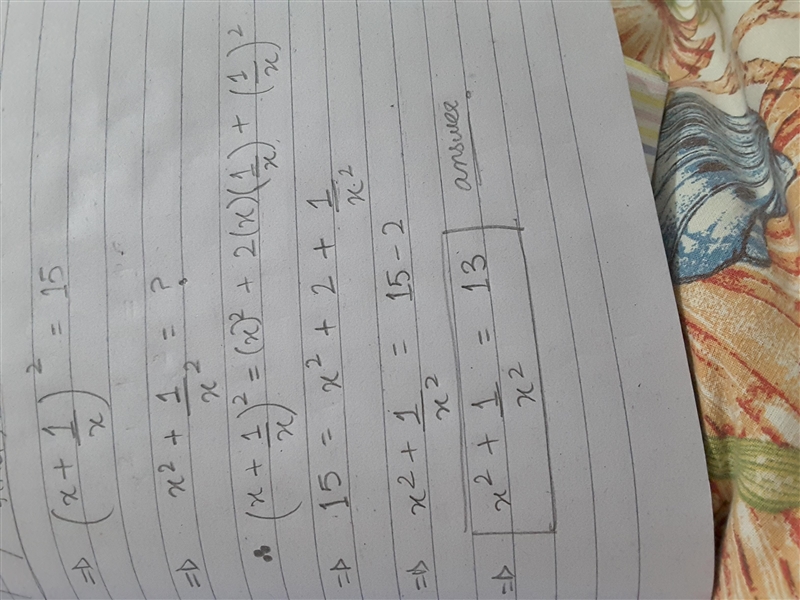 ⇒ (x + 1/x)² = 15
⇒ x² + 1/x² = ?
∴ (x + 1/x)² = (x)² + 2(x)(1/x) + (1/x)²
⇒ 15 = x² + 2 + 1/x²
⇒ x² + 1/x² = 15 - 2
⇒ x² + 1/x² = 13 answer.